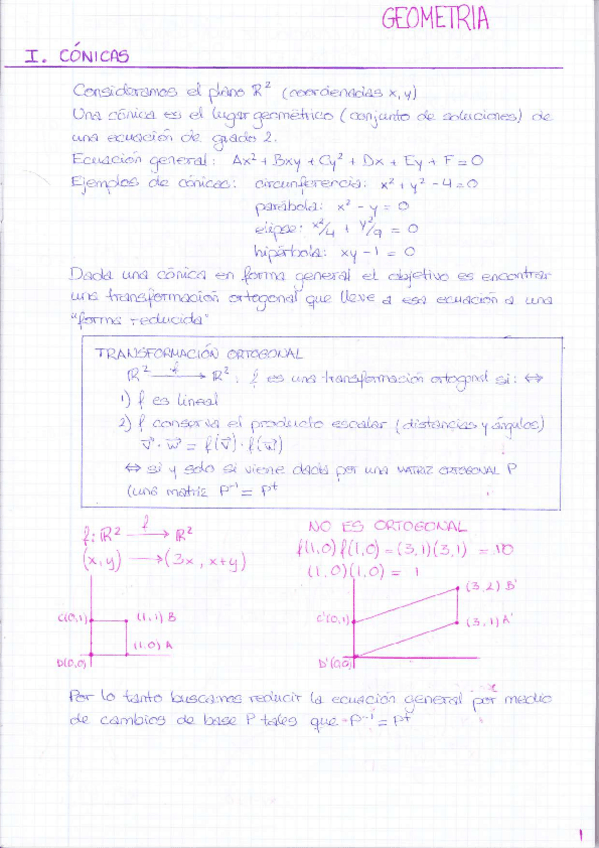 GEOMETRIA
I. CÓNICAS
Consideramos el plano ℝ² (coordenadas x, y)
Una cónica es el lugar geométrico (conjunto de soluciones) de
una ecuación de grado 2.
Ecuación general: Ax² + Bxy + Cy² + Dx + Ey + F = 0
Ejemplos de cónicas: circunferencia: x² + y² - 4 = 0
parábola: x² - y = 0
elipse: x²/4 + y²/9 = 0
hipérbola: xy - 1 = 0
Dada una cónica en forma general el objetivo es encontrar
una transformación ortogonal que lleve a esa ecuación a una
"forma reducida"
TRANSFORMACIÓN ORTOGONAL
ℝ² —f→ ℝ² : f es una transformación ortogonal si: ⇔
1) f es lineal
2) f conserva el producto escalar (distancias y ángulos)
v⃗ · w⃗ = f(v⃗) · f(w⃗)
⇔ si y solo si viene dada por una MATRIZ ORTOGONAL P
(una matriz P⁻¹ = Pᵗ
f: ℝ² —f→ ℝ²
(x, y) → (3x, x+y)
NO ES ORTOGONAL
f(1,0) f(1,0) = (3,1)(3,1) = 10
(1,0)(1,0) = 1
C(0,1)
(1,1) B
(1,0) A
D(0,0)
(3,2) B'
C'(0,1)
(3,1) A'
D'(0,0)
Por lo tanto buscamos reducir la ecuación general por medio
de cambios de base P tales que P⁻¹ = Pᵗ
1